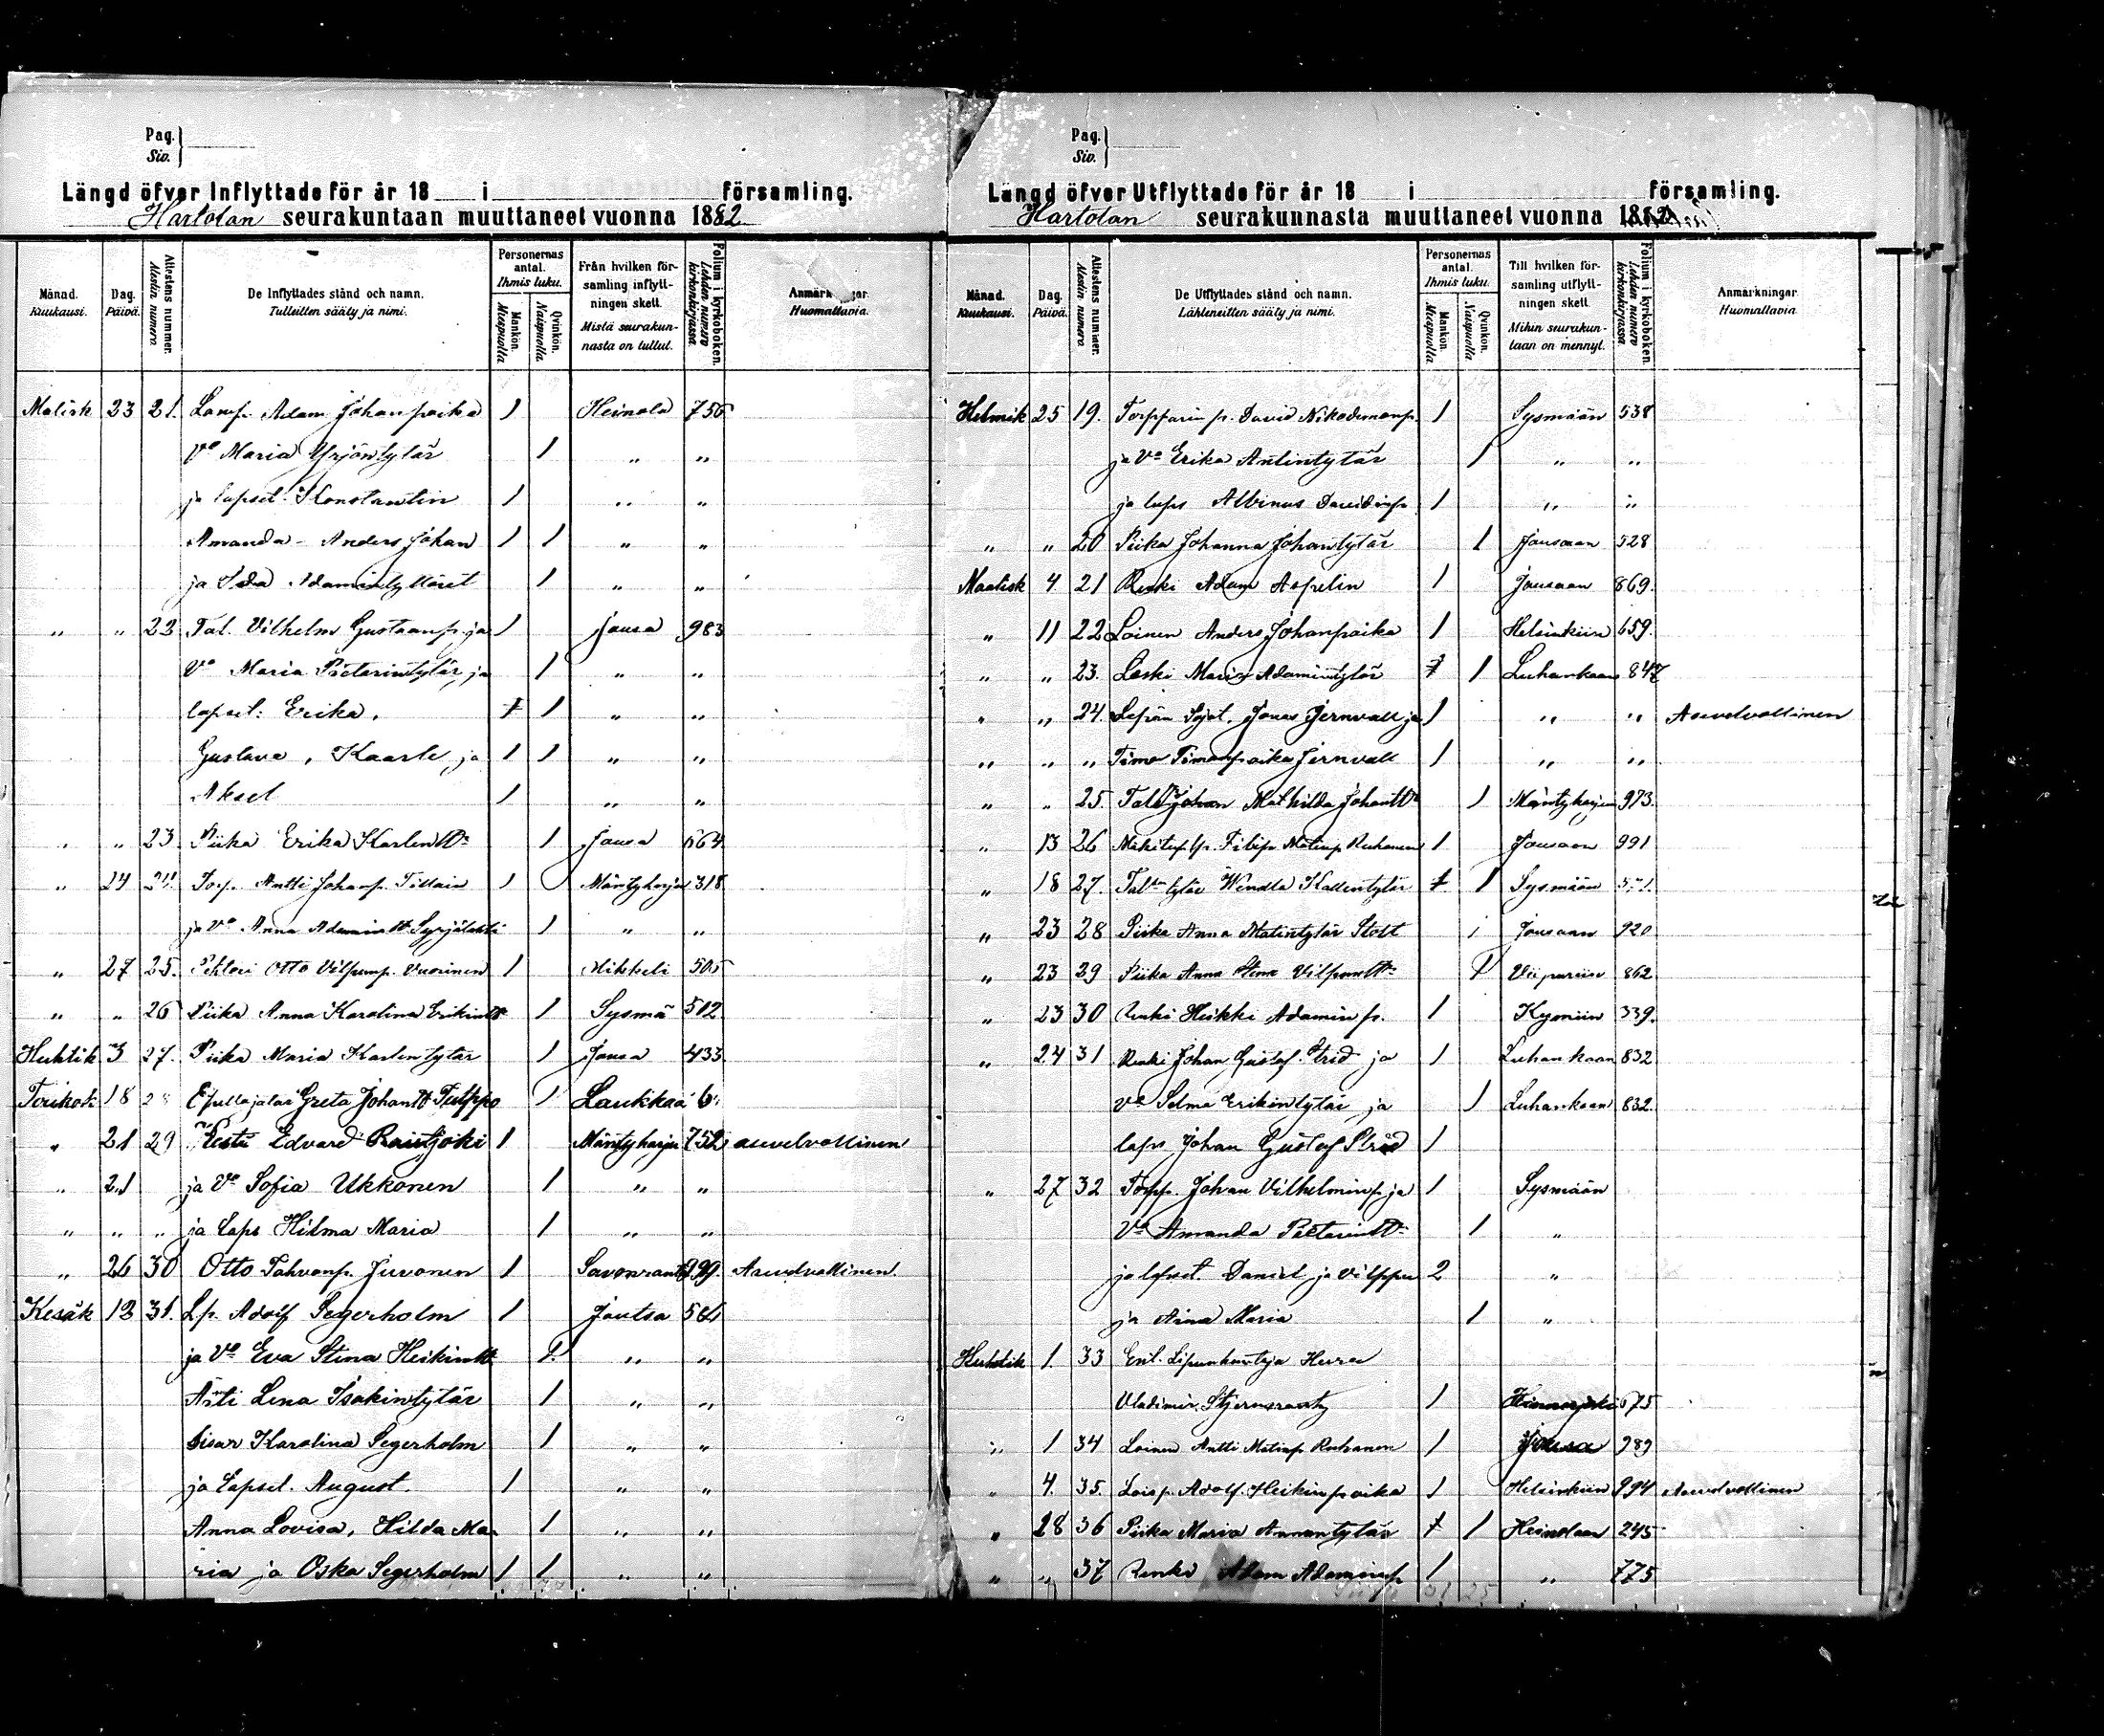 Pag.
Siv.
Längd öfver Inflyttade för år 18 i församling.
Hartolan seurakuntaan muuttaneet vuonna 1882
Månad. Kuukausi.
Dag. Päivä.
Attestens nummer. Mestin numero
De Inflyttades stånd och namn. Tulleitten sääty ja nimi.
Personernas antal. Ihmis luku.
Mankön. Miespuolia
Qvinkön. Naispuolia
Från hvilken församling inflyttningen skett. Mistä seurakunnasta on tullut.
Folium i kyrkoboken. Lehden numero kirkonkirjassa.
Anmärkningar. Huomattavia.
Malisk 23 21. Lamp. Adam Johanpoika 1 Heinola 756
Vo Maria Yrjöntytär 1 " "
ja lapset. Konstantin 1 " "
Amanda - Anders Johan 1 1 " "
ja Ida Adamintyttäret 1 " "
" " 22 Tal. Vilhelm Gustaanp. ja 1 Jousa 983
Vo Maria Pietarintytär, ja 1 " "
lapset: Erika, 1 " "
Gustava, Kaarle, ja 1 1 " "
Aksel 1 " "
" " 23 Piika Erika Karlentt 1 Jousa 664
" 24 24 Torp. Antti Johanp. Tillain 1 Mäntyharju 318
ja Vo Anna Adamintt Syrjälahti 1 " "
" 27 25. Otto Vilpunp. Vuorinen 1 Mikkeli 505
" " 26 Piika Anna Karolina Erikintt 1 Sysmä 512
Huhtik 3 27. Piika Maria Karlentytär 1 Jousa 433
Toukok 18 28 Greta Johantt Tulppo 1 Laukkaa 6
" 21 29 Edvard Raistjoki 1 Mäntyharju 752 asuvelvollinen
" 21 ja Vo Sofia Ukkonen 1 " "
" " " ja Laps Hilma Maria 1 " "
" 26 30 Otto Tahvonp. Juvonen 1 Savonranta 999. Asevelvollinen.
Kesäk 12 31. Lp. Adolf Segerholm 1 Joutsa 561
ja Vo Eva Stina Heikintt 1. " "
Äiti Lena Isakintytär 1 " "
Sisar Karolina Segerholm 1 " "
ja Lapset. August. 1 " "
Anna Lovisa, Hilda Ma- 1 " "
ria ja Oska Segerholm 1 1 " "
Pag.
Siv.
Längd öfver Utflyttade för år 18 i församling.
Hartolan seurakunnasta muuttaneet vuonna 1882
Månad. Kuukausi.
Dag. Päivä.
Attestens nummer. Mestin numero
De Utflyttades stånd och namn. Lähteneitten sääty ja nimi.
Personernas antal. Ihmis luku.
Mankön. Miespuolia
Qvinkön. Naispuolia
Till hvilken församling utflyttningen skett. Mihin seurakuntaan on mennyt.
Folium i kyrkoboken. Lehden numero kirkonkirjassa
Anmärkningar. Huomattavia
Helmik 25 19. Torpparin p. David Nikodemonp. 1 Sysmään 538
ja Vo Erika Antintytär 1 " "
ja laps Albinus Davidinp 1 " "
" " 20 Piika Johanna Johantytär 1 Jousaan 528
Maalisk 4 21 Renki Adam Aspelin 1 Jousaan 869.
" 11 22 Loinen Anders Johanpoika 1 Helsinkiin 659.
" " 23. Leski Maria Adamintytär 1 Luhankaan 847
" " 24. Jonas Jernvall ja 1 " " Asevelvollinen
" " " Timo Timonpoika Jernvall 1 " "
" " 25. Mathilda Johantt 1 Mäntyharjun 973.
" 13 26 Filip Matinp Ruhanen 1 Jousaan 991
" 18 27. Tal tytär Wendla Kallentytär 1 Sysmään 571
" 23 28 Piika Anna Matintytär Stolt 1 Jousaan 920
" 23 29 Piika Anna Stina Vilpuntt 1 Viipuriin 862
" 23 30 Renki Heikki Adamin p. 1 Kymiin 339.
" 24 31 Renki Johan Gustaf Strid ja 1 Luhankaan 832
Vo Selma Erikintytär ja 1 Luhankaan 832.
laps Johan Gustaf Strid 1
" 27 32 Torpp. Johan Vilhelminp. ja 1 Sysmään
Vo Amanda Pietarintt 1 "
ja lapset. Daniel ja Vilppu 2 "
ja Aina Maria 1 "
Huhtik 1. 33 Ent. Lipunkantaja Herra
Vladimir Stjernvanty 1 675
" 1 34 Loinen Antti Matinp. Ruhanen 1 Jousa 989
" 4. 35. Loisp. Adolf Heikinpoika 1 Helsinkiin 994 Asevelvollinen
" 28 36 Piika Maria Annantytär 1 Heinolaan 245
" " 37 Renki Adam Adaminp 1 " 775